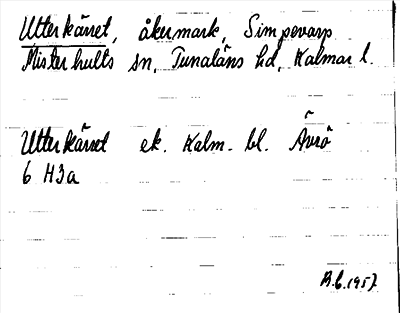 Utterkärret, åkermark, Simpevarp
Misterhults sn, Tunaläns hd, Kalmar l.
Utterkärret ek. Kalm. bl. Ävrö
6 H3a
B.b.1957